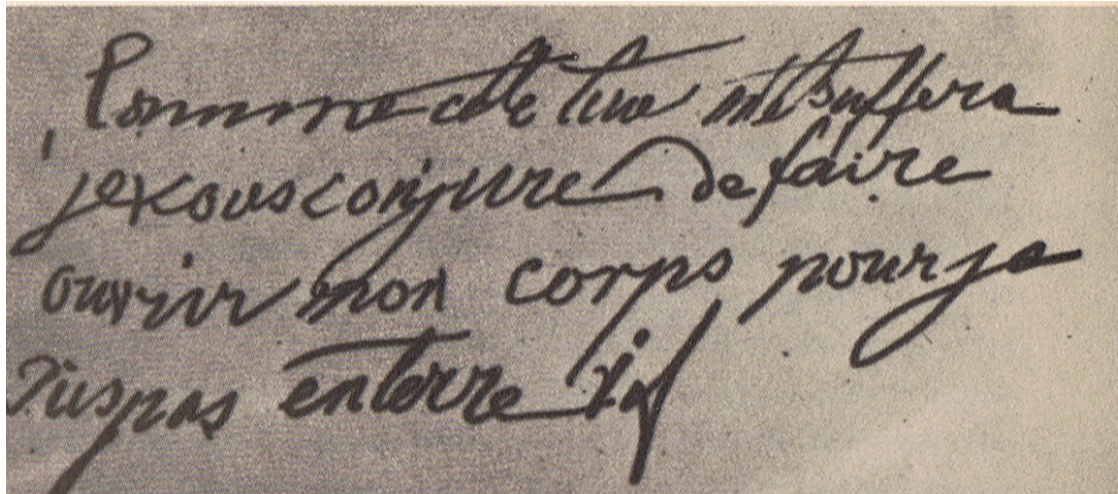 Comme cete terre m'etouffera
je vous conjure de faire
ouvrir mon corps pour je
sius pas enterre vif